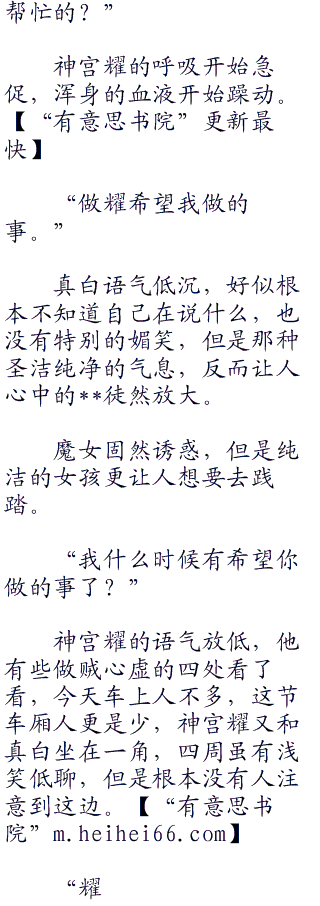 帮忙的？”
神宫耀的呼吸开始急
促，浑身的血液开始躁动。
【“有意思书院”更新最
快】
“做耀希望我做的
事。”
真白语气低沉，好似根
本不知道自己在说什么，也
没有特别的媚笑，但是那种
圣洁纯净的气息，反而让人
心中的**徒然放大。
魔女固然诱惑，但是纯
洁的女孩更让人想要去践
踏。
“我什么时候有希望你
做的事了？”
神宫耀的语气放低，他
有些做贼心虚的四处看了
看，今天车上人不多，这节
车厢人更是少，神宫耀又和
真白坐在一角，四周虽有浅
笑低聊，但是根本没有人注
意到这边。【“有意思书
院”m.heihei66.com】
“耀